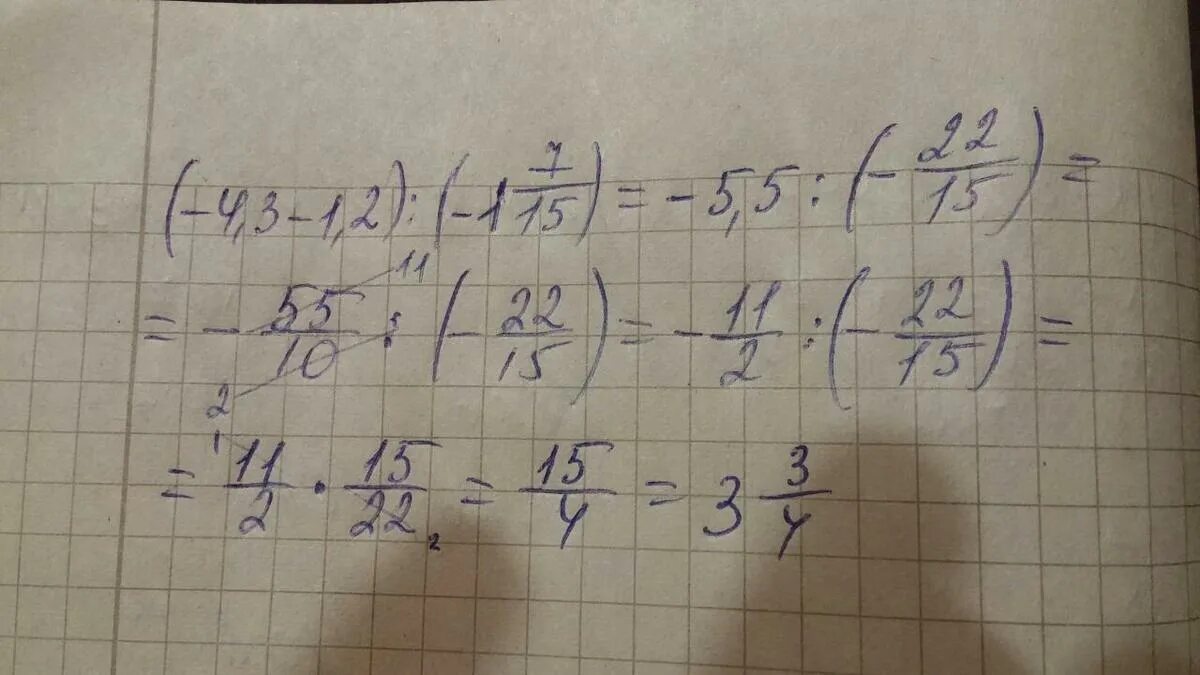 (-4,3-1,2):(-1 7/15) = -5,5 : (- 22/15) =
= - 55/10 : (- 22/15) = - 11/2 : (- 22/15) =
11
2
= 11/2 · 15/22 = 15/4 = 3 3/4
1
2